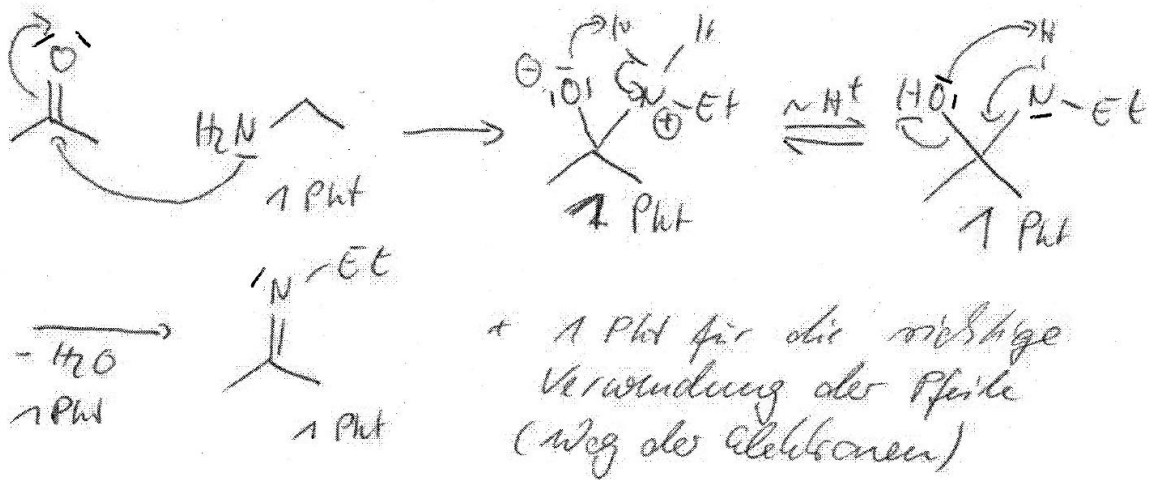 O
H₂N
1 Pkt
⊖ O H H
N ⊕ Et
1 Pkt
~ H⁺
HO H
N Et
1 Pkt
- H₂O
1 Pkt
N Et
1 Pkt
+ 1 Pkt für die richtige
Verwendung der Pfeile
(Weg der Elektronen)